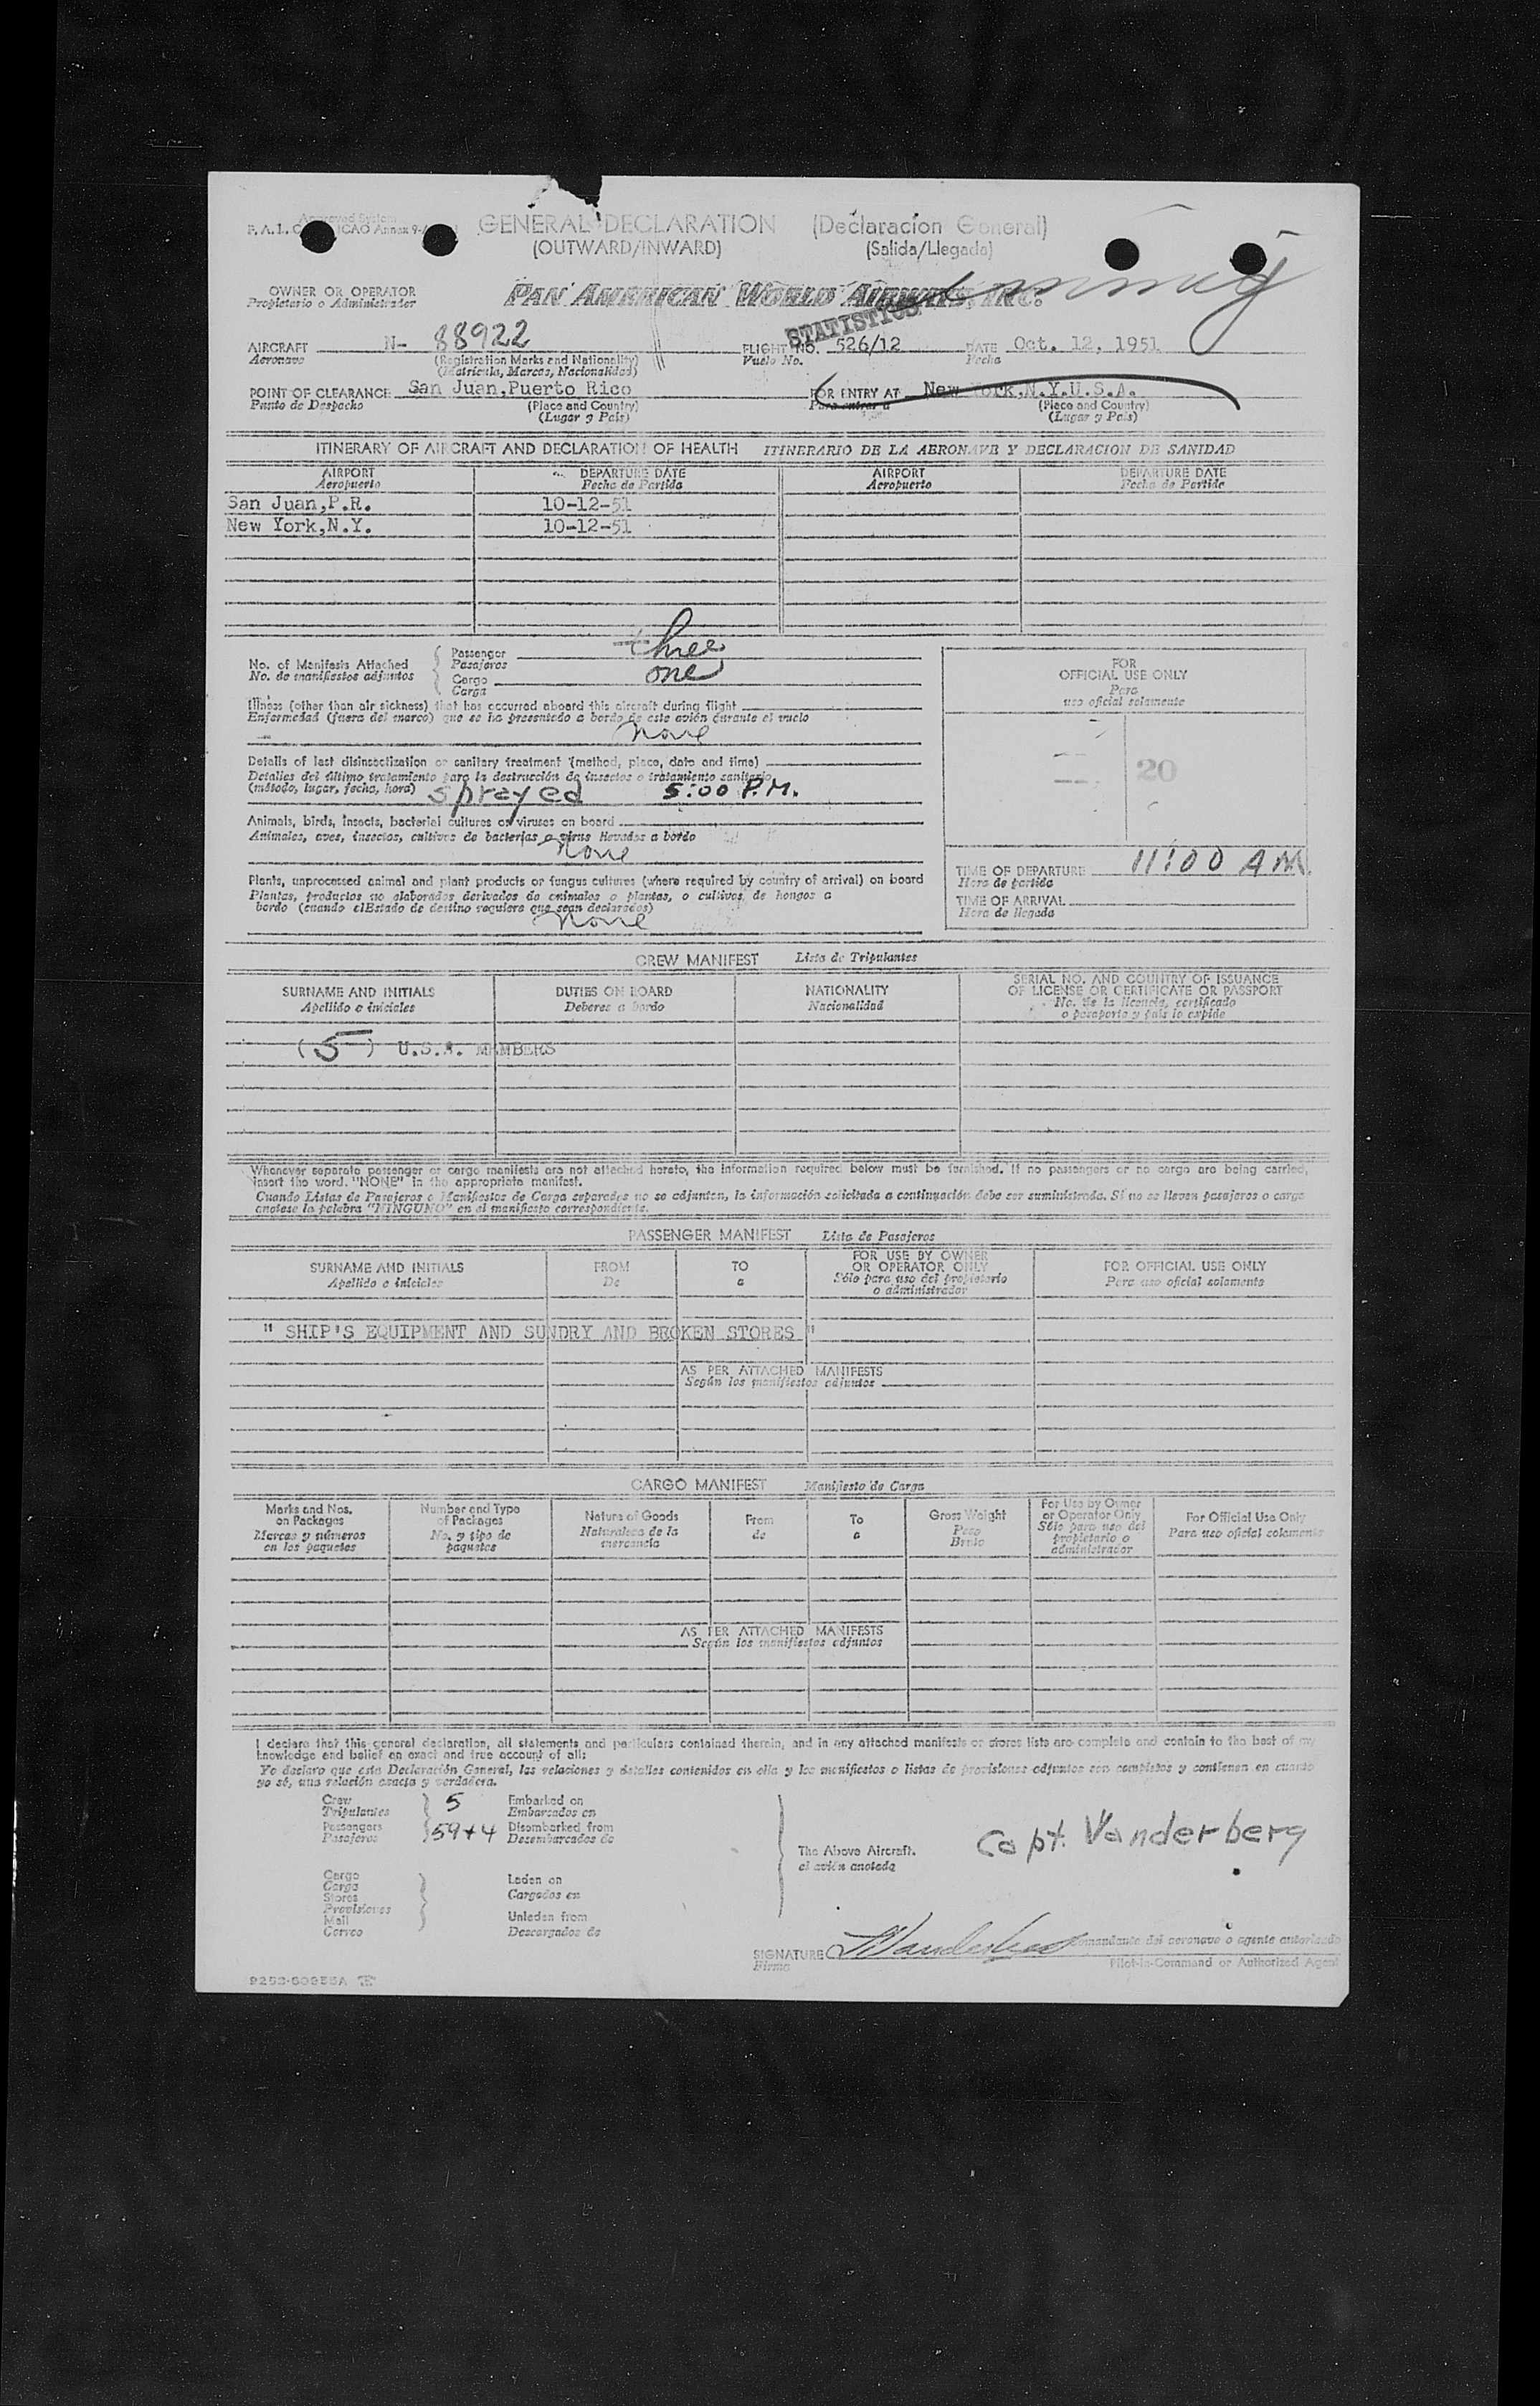 Approved System
GENERAL DECLARATION (Declaracion General)
P. A. I. C. ICAO Annex 9-
(OUTWARD/INWARD) (Salida/Llegada)
OWNER OR OPERATOR PAN AMERICAN WORLD AIRWAYS, INC.
Propietario o Administrador
STATISTICS
AIRCRAFT N- 88922 FLIGHT NO. 526/12 DATE Oct. 12, 1951
Aeronave (Registration Marks and Nationality) Vuelo No. Fecha
(Matricula, Marcas, Nacionalidad)
POINT OF CLEARANCE San Juan,Puerto Rico FOR ENTRY AT New York,N.Y.U.S.A.
Punto de Despacho (Place and Country) Para entrar a (Place and Country)
(Lugar y País) (Lugar y País)
ITINERARY OF AIRCRAFT AND DECLARATION OF HEALTH ITINERARIO DE LA AERONAVE Y DECLARACION DE SANIDAD
AIRPORT DEPARTURE DATE AIRPORT DEPARTURE DATE
Aeropuerto Fecha de Partida Aeropuerto Fecha de Partida
San Juan,P.R. 10-12-51
New York,N.Y. 10-12-51
No. of Manifests Attached Passenger three
No. de manifiestos adjuntos Pasajeros
Cargo one
Carga
FOR
OFFICIAL USE ONLY
Para
uso oficial solamente
20
Illness (other than air sickness) that has occurred aboard this aircraft during flight
Enfermedad (fuera del mareo) que se ha presentado a bordo de este avión durante el vuelo
none
Details of last disinsectization or sanitary treatment (method, place, date and time)
Detalles del último tratamiento para la destrucción de insectos o tratamiento sanitario
(método, lugar, fecha, hora) sprayed 5:00 P.M.
Animals, birds, insects, bacterial cultures or viruses on board
Animales, aves, insectos, cultivos de bacterias o virus llevados a bordo
none
Plants, unprocessed animal and plant products or fungus cultures (where required by country of arrival) on board
Plantas, productos no elaborados derivados de animales o plantas, o cultivos de hongos a
bordo (cuando el Estado de destino requiere que sean declarados)
none
TIME OF DEPARTURE 11:00 AM
Hora de partida
TIME OF ARRIVAL
Hora de llegada
CREW MANIFEST Lista de Tripulantes
SURNAME AND INITIALS DUTIES ON BOARD NATIONALITY SERIAL NO. AND COUNTRY OF ISSUANCE
Apellido e iniciales Deberes a bordo Nacionalidad OF LICENSE OR CERTIFICATE OR PASSPORT
No. de la licencia, certificado
o pasaporte y país lo expide
(5) U.S.A. MEMBERS
Whenever separate passenger or cargo manifests are not attached hereto, the information required below must be furnished. If no passengers or no cargo are being carried,
insert the word. "NONE" in the appropriate manifest.
Cuando Listas de Pasajeros o Manifiestos de Carga separados no se adjunten, la información solicitada a continuación debe ser suministrada. Si no se llevan pasajeros o carga
anotese la palabra "NINGUNO" en el manifiesto correspondiente.
PASSENGER MANIFEST Lista de Pasajeros
SURNAME AND INITIALS FROM TO FOR USE BY OWNER FOR OFFICIAL USE ONLY
Apellido e iniciales De a OR OPERATOR ONLY Para uso oficial solamente
Sólo para uso del propietario
o administrador
" SHIP'S EQUIPMENT AND SUNDRY AND BROKEN STORES "
AS PER ATTACHED MANIFESTS
Según los manifiestos adjuntos
CARGO MANIFEST Manifiesto de Carga
Marks and Nos. Number and Type Nature of Goods From To Gross Weight For Use by Owner For Official Use Only
on Packages of Packages Naturaleza de la de a Peso or Operator Only Para uso oficial solamente
Marcas y números No. y tipo de mercancía Bruto Sólo para uso del
en los paquetes paquetes propietario o
administrador
AS PER ATTACHED MANIFESTS
Según los manifiestos adjuntos
I declare that this general declaration, all statements and particulars contained therein, and in any attached manifests or stores lists are complete and contain to the best of my
knowledge and belief an exact and true account of all:
Yo declaro que esta Declaración General, las relaciones y detalles contenidos en ella y los manifiestos o listas de provisiones adjuntos son completos y contienen en cuanto
yo sé, una relación exacta y verdadera.
Crew 5 Embarked on
Tripulantes Embarcados en
Passengers 59+4 Disembarked from
Pasajeros Desembarcados de
The Above Aircraft. Capt. Vanderberg
el avión anotado
Cargo Laden on
Carga Cargados en
Stores
Provisiones Unladen from
Mail Descargados de
Correo
SIGNATURE Comandante del aeronave o agente autorizado
Firma Pilot-in-Command or Authorized Agent